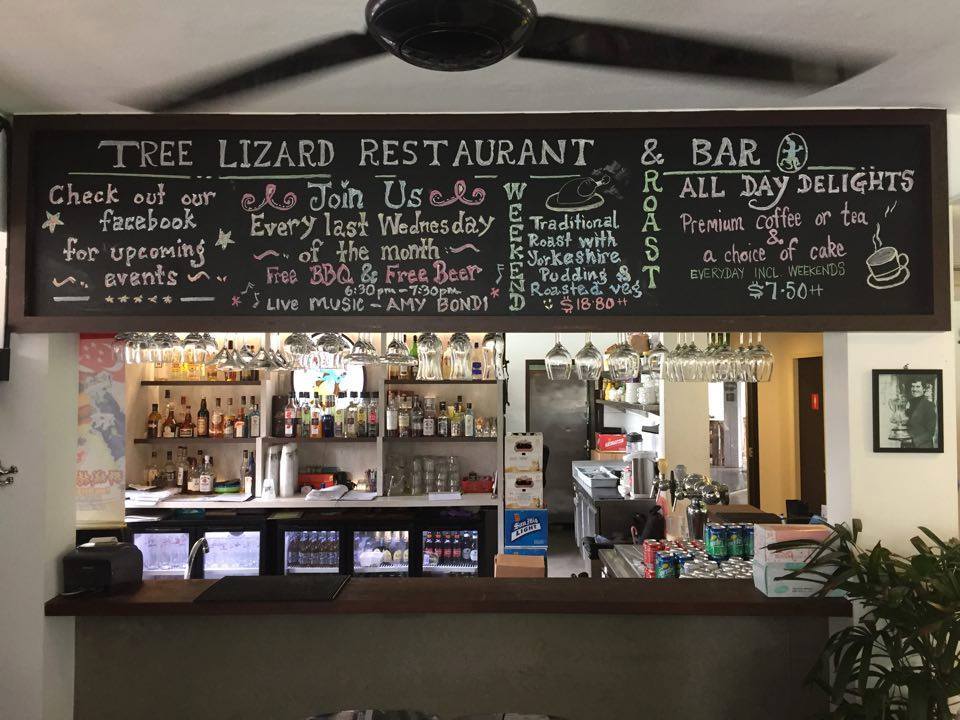 TREE LIZARD RESTAURANT & BAR
Check out our
facebook
for upcoming
events
Join Us
Every last Wednesday
of the month
Free BBQ & Free Beer
6:30pm-7:30pm
LIVE MUSIC - AMY BONDI
WEEKEND
Traditional
Roast with
Yorkeshire
Pudding &
Roasted veg
$18.80++
ROAST
ALL DAY DELIGHTS
Premium coffee or tea
&
a choice of cake
EVERYDAY INCL. WEEKENDS
$7.50++
San Mig
LIGHT